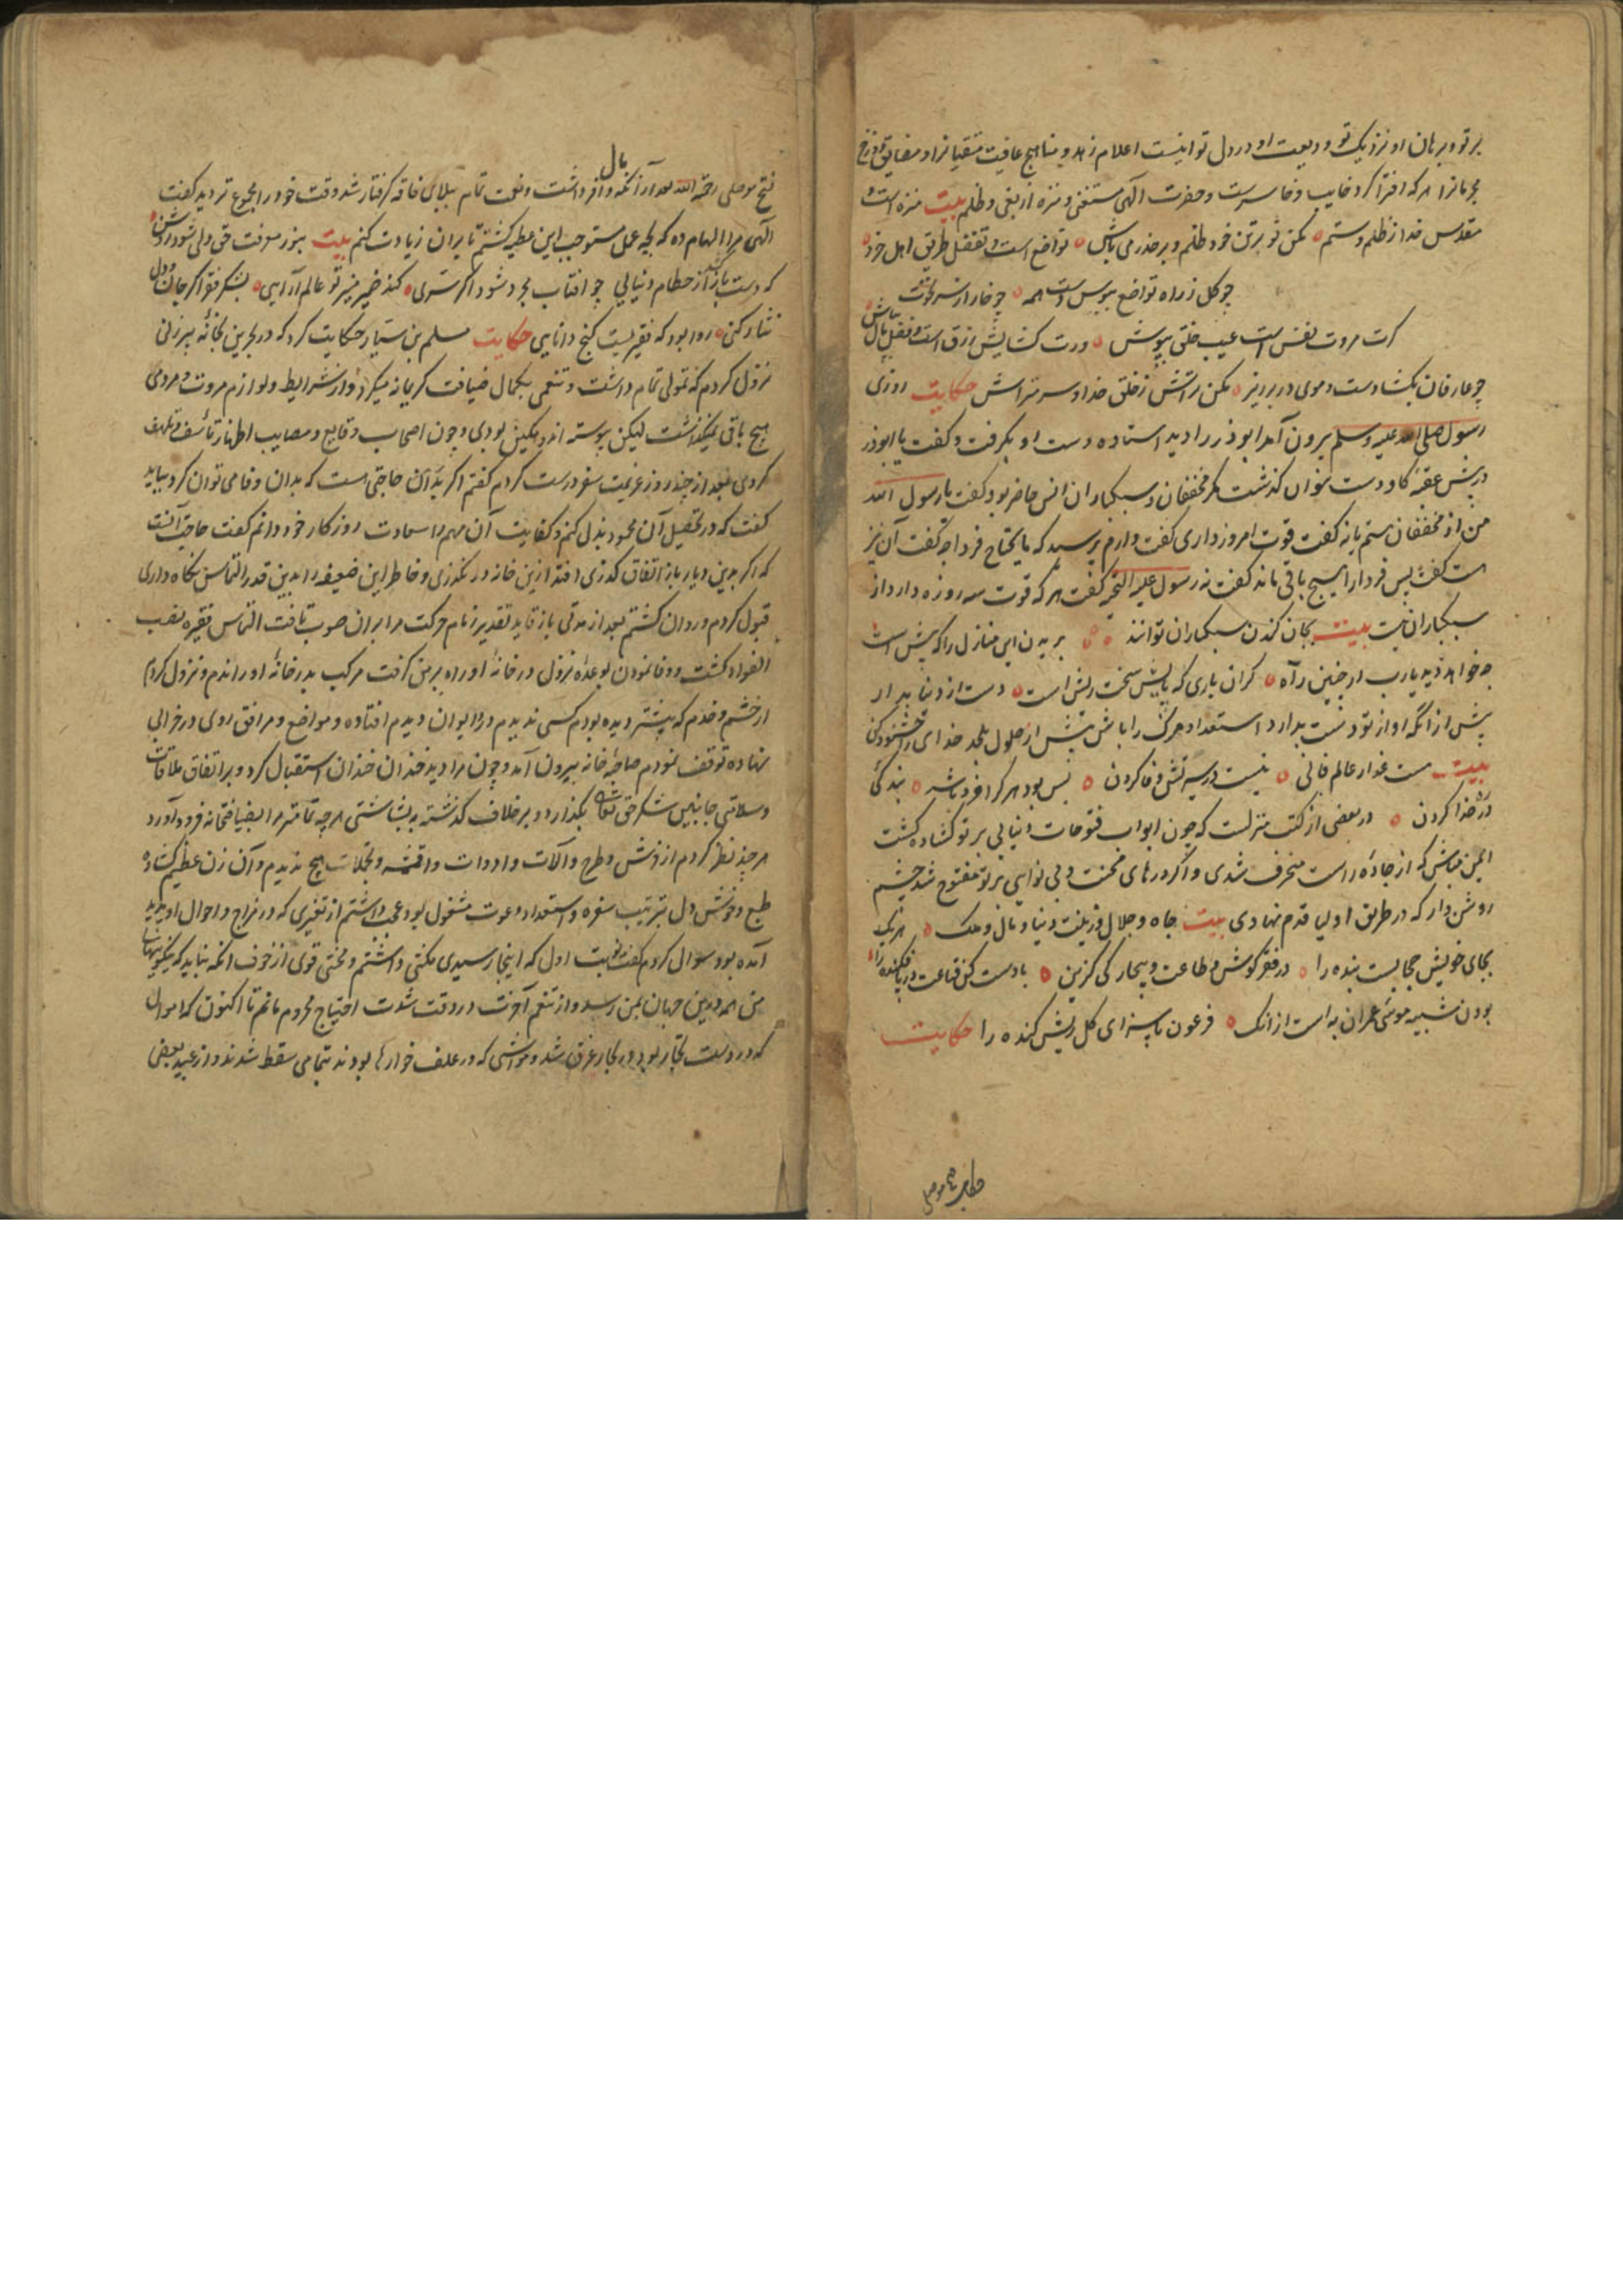 بر تو و برهان او نزدیک تو و ودیعت او در دل تو اینست اعلام زهد و مناهج عاقبت متقیانرا و مضایق دوزخ
مجرمانرا هر که افترا کرد خایب و خاسرست و حضرت الهی مستغنی و منزه از بغی و ظلم بیت منزه است و
مقدس خدا از ظلم و ستم مکن تو بر تن خود ظلم و بر حذر می باش تواضع است و تفضل طریق اهل خرد
چو گل ز راه تواضع ببوس دست همه چو خار از سر نخوت
گرت مروت نفس است عیب خلق بپوش ورت گشایش رزق است فضل مال بپاش
چو عارفان بگشا دست و موی در بر ریز مکن تراتش ز خلق خدا و سر متراش حکایت روزی
رسول صلی الله علیه وسلم بیرون آمد ابوذر را دید استاده دست او بگرفت و گفت یا اباذر
در پیش عقبه کاودست نتوان گذشت مگر مخففان و سبکباران انس حاضر بود گفت یا رسول الله
من از مخففان هستم یا نه گفت قوت امروز داری گفت دارم پرسید که مایحتاج فردا چه گفت آن نیز
هست گفت پس فردا را هیچ باقی ماند گفت نه رسول علیه التحیه گفت هر که قوت سه روزه دارد از
سبکباران نیست بیت بجان کندن سبکباران توانند بریدن این منازل را که پیش است
چه خواهد دید یارب از چنین راه گران باری که پایش سخت ریش است دست از دنیا بدار
پیش از آنکه او از تو دست بدارد استعداد مرگ را باش پیش از حلول لحد خدای را خشنود کن
بیت هست غدار عالم فانی نیست در سیرتش وفا کردن بس بود هر کرا خرد باشد بندگی
در خدا کردن در بعضی از کتب منزلست که چون ابواب فتوحات دنیایی بر تو گشاده گشت
ایمن مباش که از جاده راست منحرف شدی و اگر درهای محنت و بی نوایی بر تو مفتوح شد چشم
روشن دار که در طریق اولیا قدم نهادی بیت جاه و جلال و زینت دنیا و مال و ملک هر یک
بجای خویش حجابیست بنده را در فقر کوش و طاعت و بیچارگی گزین با دست کن قناعت در پا فکنده را
بودن شبیه موسی عمران به است از انک فرعون پاسزای گل ریش کنده را حکایت
حکایت فتح موصلی
فتح موصلی رحمة الله بعد از آنکه مال وافر داشت و نعمت تمام ببلای فاقه گرفتار شد وقت خود را مجموع تر دید گفت
الهی مرا الهام ده که بچه عمل مستوجب این عطیه گشتم تا بران زیادت کنم بیت بنور معرفت حق دلی شود روشن
که دست باز کشد از حطام دنیایی چو افتاب مجرد شو و اگر ستری کند ضمیر منیر تو عالم آرایی بشکر فقر اگر جان و دل
نثار کنی روا بود که فقریست گنج دانایی حکایت مسلم بن سیار حکایت کرد که در بحرین بخانه پیرزنی
نزول کردم که تمولی تمام داشت و تنعمی بکمال ضیافت کریمانه میکرد و از شرایط و لوازم مروت و مردمی
هیچ باقی نمیگذاشت لیکن پیوسته اندهگین بودی و چون اصحاب وقایع و مصایب اظهار تأسف و تلهف
کردی بعد از چند روز عزیمت سفر درست کردم گفتم اگر ترا حاجتی هست که بدان وفا می توان کرد بباید
گفت که در تحصیل آن مجهود بذل کنم و کفایت آن مهم را سعادت روزگار خود دانم گفت حاجت آنست
که اگر بدین دیار باز اتفاق گذری افتد ازین خانه در نگذری و خاطر این ضعیفه را بدین قدر التماس نگاه داری
قبول کردم و روان گشتم بعد از مدتی باز قاید تقدیر زمام حرکت مرا بران صوب تافت التماس فقیره نصب
الفواد گشت و وفا نمودن بوعده نزول در خانه او راه بر من گرفت مرکب بدر خانه او راندم و نزول کردم
از حشم و خدم که پیشتر دیده بودم کسی ندیدم در و ایوان دیدم افتاده و مواضع و مرافق روی در خرابی
نهاده توقف نمودم صاحبه خانه بیرون آمد و چون مرا دید خندان خندان استقبال کرد و بر اتفاق ملاقات
و سلامتی جانبین شکر حق تعالی بگذارد و بر خلاف گذشته به بشاشتی هر چه تمامتر مرا بضیافتخانه فرود آورد
هر چند نظر کردم از فرش و طرح و آلات و ادوات و اقمشه و تجملات هیچ ندیدم و آن زن عظیم گشاده
طبع و خوش دل بترتیب سفره و استعداد دعوت مشغول بود عجب داشتم از تغیری که در مزاج و احوال او پدید
آمده بود سوال کردم گفت نوبت اول که اینجا رسیدی مکنتی داشتم و محنتی قوی از خوف آنکه نباید که نیکویینهای
من همه درین جهان بمن رسد و از تنعم آخرت در وقت شدت احتیاج محروم مانم تا اکنون که اموال
که در دست تجار بود در بحار غرق شد و مواشی که در علف خوارها بودند بتمامی سقط شدند و از عبید بعضی